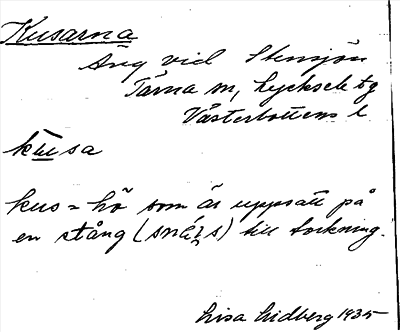 Kusarna
Äng vid Stensjön
Tärna sn, Lycksele tg
Västerbottens l
kusa
kus = hö som är uppsatt på
en stång (snäs) till torkning.
Lisa Lidberg 1935